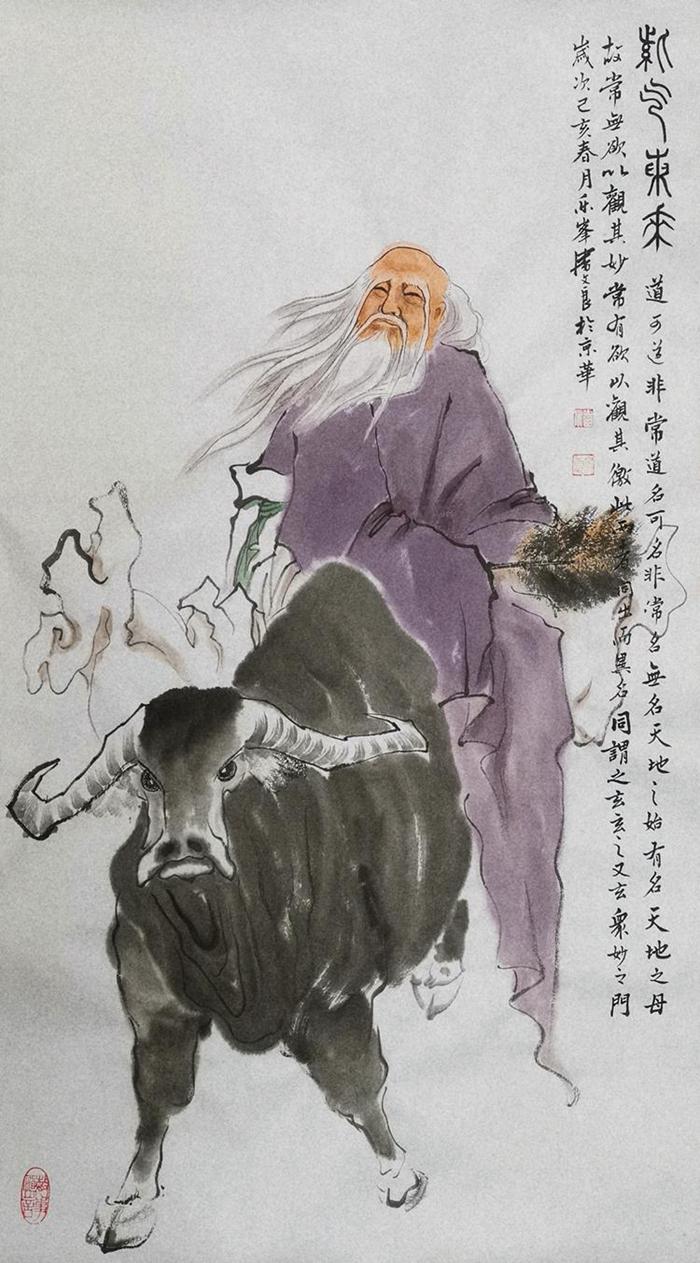 紫气東来
道可道非常道名可名非常名無名天地之始有名天地之母
故常無欲以觀其妙常有欲以觀其徼此两者同出而異名同謂之玄玄之又玄衆妙之門
歲次己亥春月乐峯文良於京華